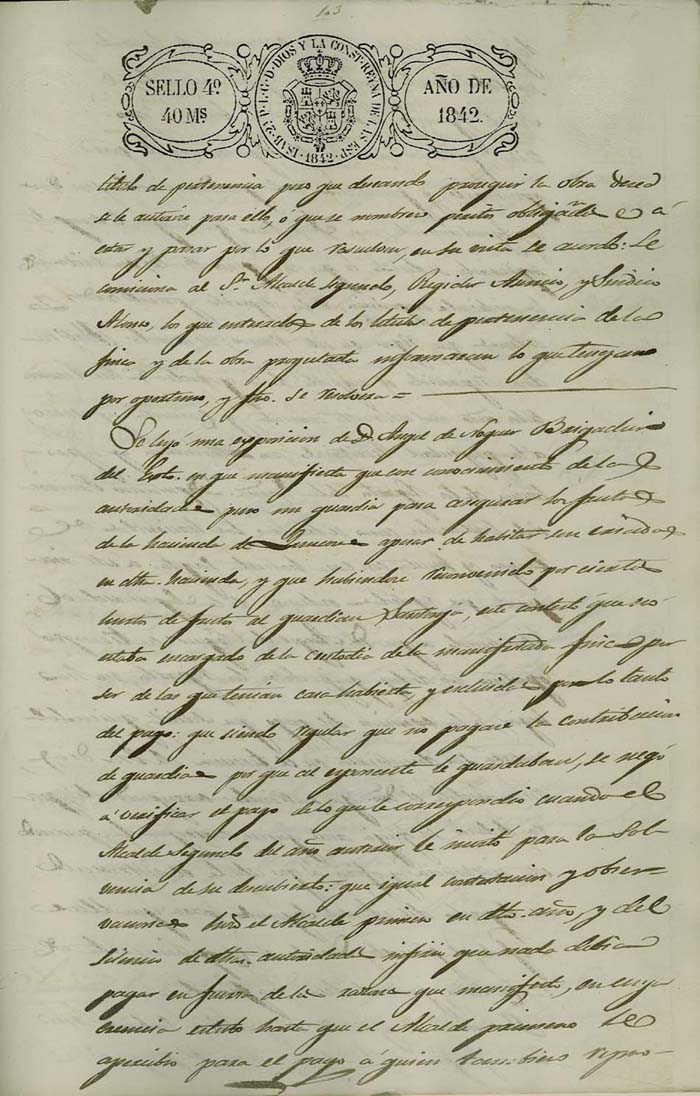 SELLO 4º
40 Ms
ISAB. 2ª P. L. G. D. DIOS Y LA CONST. REYNA DE LAS ESP.
1842
AÑO DE
1842.
titulo de pertenencia pero que deseando proseguir la obra
se le autorice para ello, o que se nombren peritos á
estar y pasar por lo que en su vista se acordó: Se
comisiona al Sr. Alcalde Segundo, Regidor y Sindico
Alonso, los que enterados de los titulos de pertenencia de la
finca y de la obra proyectada informaran lo que tengan
por oportuno, y fho. se resolvera =
Se leyó una exposicion de D. Angel de Noguer Brigadier
del Exto. en que manifiesta que con conocimiento de la
autoridad puso un guardia para asegurar los frutos
de la hacienda de apesar de habitar un criado
en dha. hacienda, y que habiendose reconvenido por ciertos
hurtos de frutos al guardian Santoja, este contestó que no
estaba encargado de la custodia de la manifestada finca por
ser de las que tenian casa habierta, y excluida por lo tanto
del pago: que siendo regular que no pagase la contribucion
de guardia por que al exponente le guardaban, se negó
á verificar el pago de lo que le correspondio cuando el
Alcalde Segundo del año anterior le invitó para la Sol-
vencia de su descubierto: que igual contestacion y obser-
vaciones hizo el Alcalde primero en dho. año, y del
silencio de dhas. autoridades infirio que nada debia
pagar en fuerza de la razon que manifestó, en cuya
creencia estubo hasta que el Alcalde primero le
apercibio para el pago á quien tambien repro-